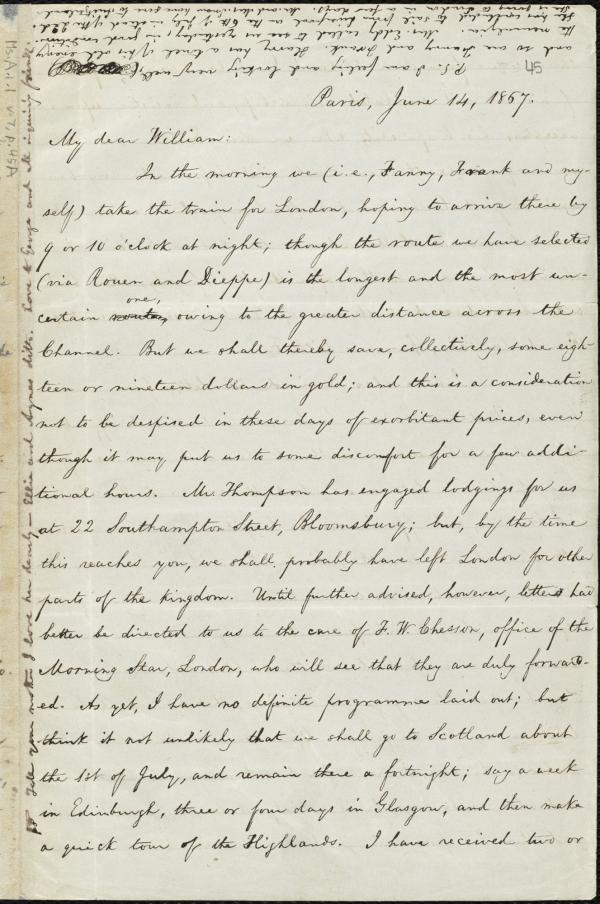 45
Paris, June 14, 1867.
My dear William:
In the morning we (i.e., Fanny, Frank and my-
self) take the train for London, hoping to arrive there by
9 or 10 o'clock at night; though the route we have selected
(via Rouen and Dieppe) is the longest and the most un-
certain one, owing to the greater distance across the
Channel. But we shall thereby save, collectively, some eigh-
teen or nineteen dollars in gold; and this is a consideration
not to be despised in these days of exorbitant prices, even
though it may put us to some discomfort for a few addi-
tional hours. Mr. Thompson has engaged lodgings for us
at 22 Southampton Street, Bloomsbury; but, by the time
this reaches you, we shall probably have left London for other
parts of the kingdom. Until further advised, however, letters had
better be directed to us to the care of F. W. Chesson, office of the
Morning Star, London, who will see that they are duly forward-
ed. As yet, I have no definite programme laid out; but
think it not unlikely that we shall go to Scotland about
the 1st of July, and remain there a fortnight; say a week
in Edinburgh, three or four days in Glasgow, and then make
a quick tour of the Highlands. I have received two or
Tell your mother I love her dearly — Ellie and Agnes ditto. Love to George and all inquiring friends.
P.S. I am feeling and looking very well,
and so are Fanny and Frank. Harry has a touch of his old